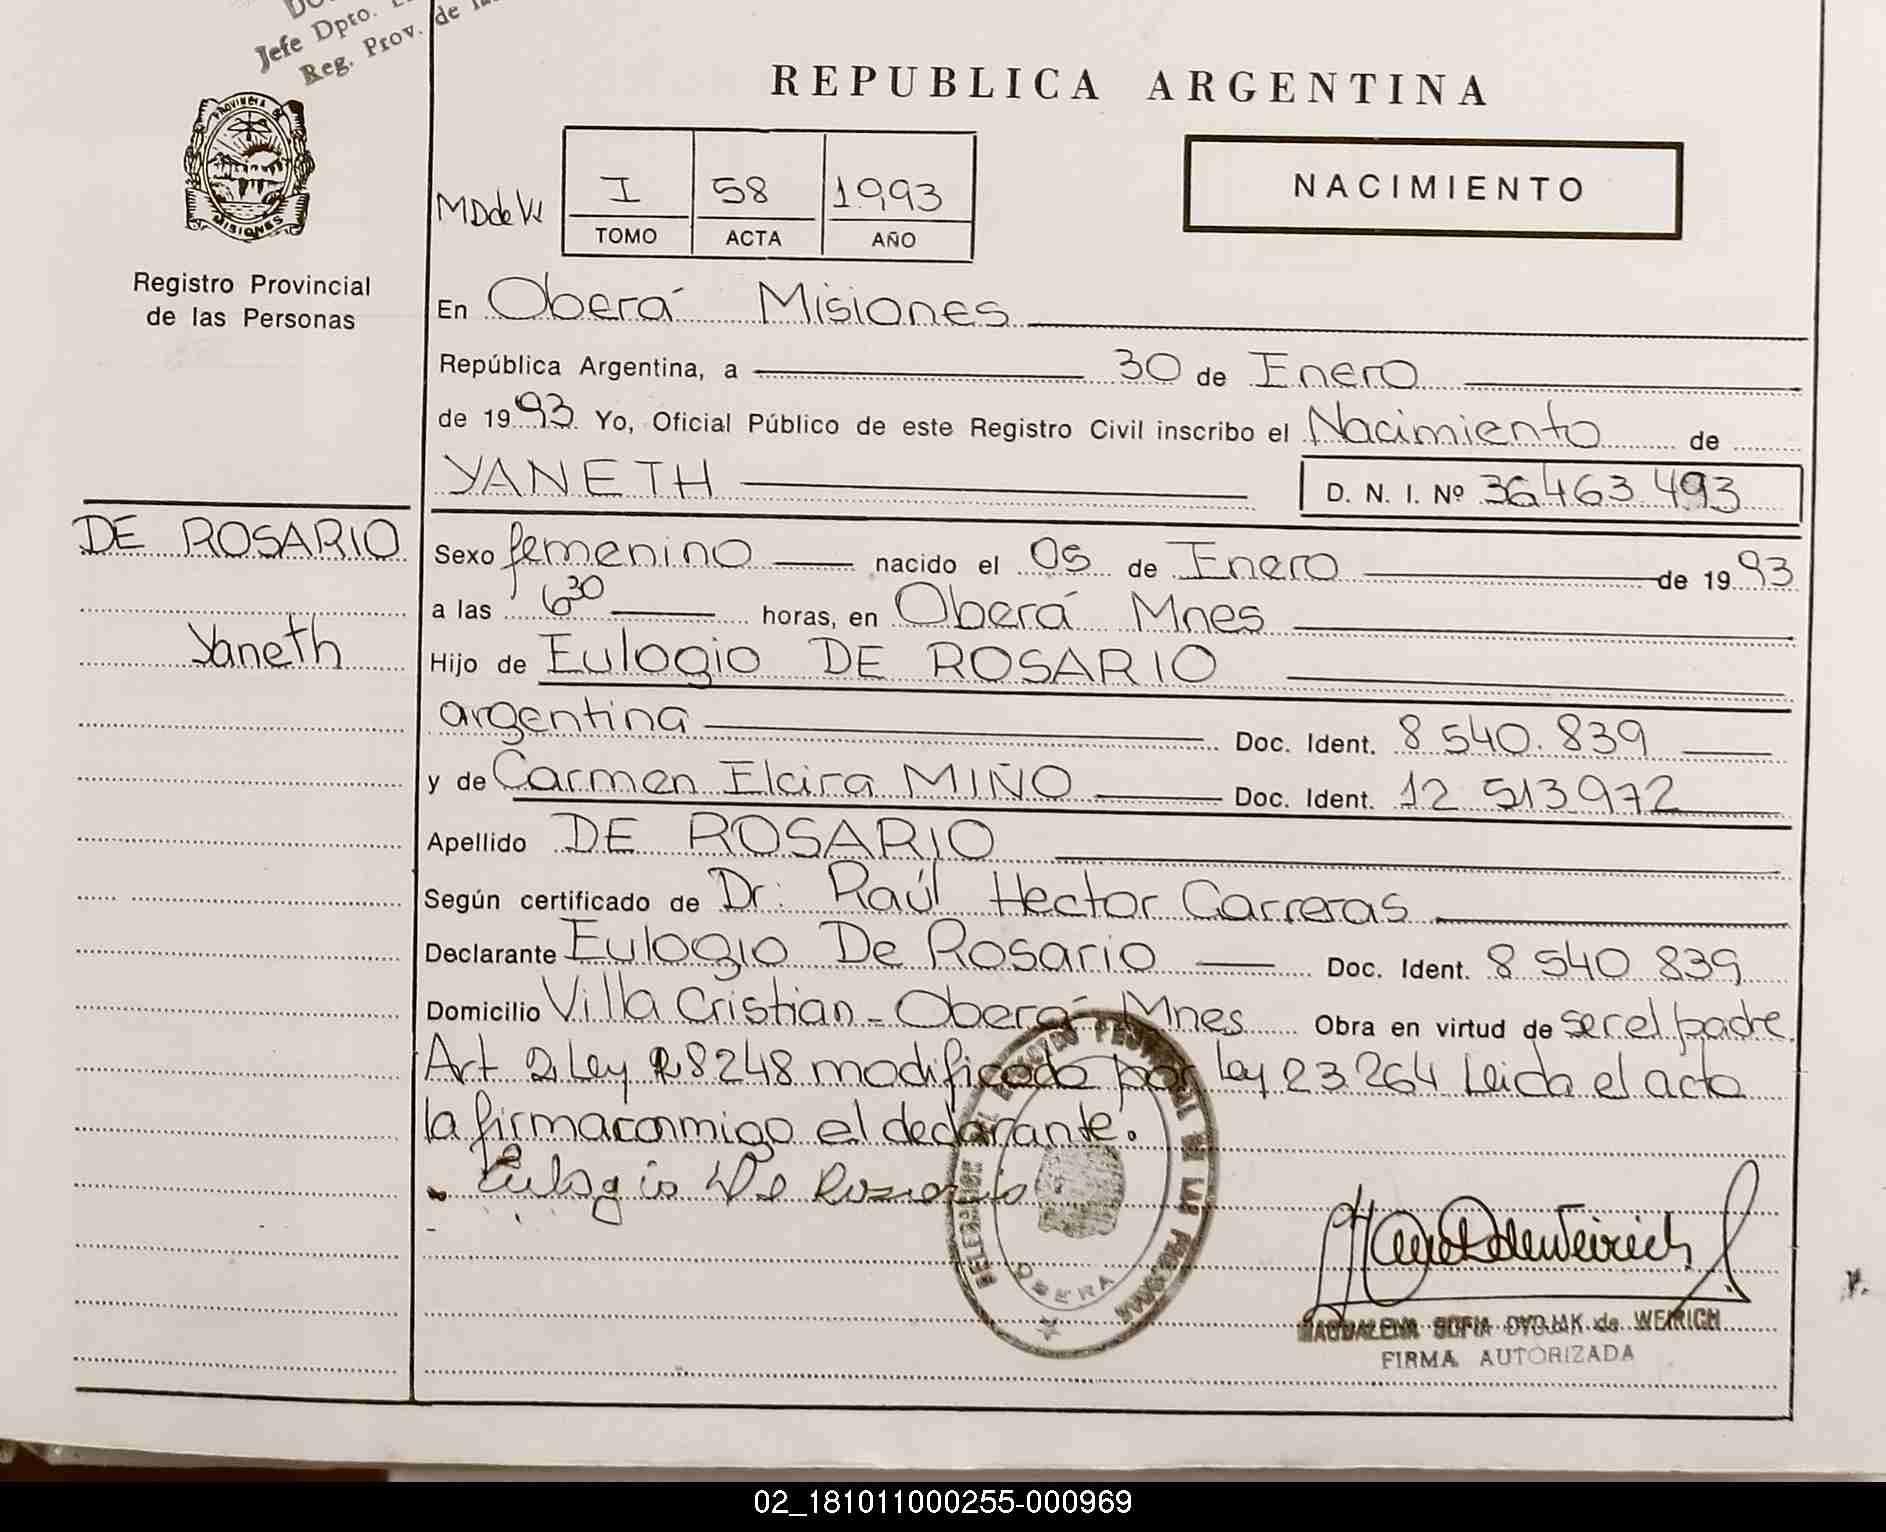 Jefe Dpto.
Reg. Prov. de
REPUBLICA ARGENTINA
PROVINCIA DE
MISIONES
Registro Provincial
de las Personas
MDdeW
I 58 1993
TOMO ACTA AÑO
NACIMIENTO
En Oberá Misiones
República Argentina, a 30 de Enero
de 1993 Yo, Oficial Público de este Registro Civil inscribo el Nacimiento de
YANETH D. N. I. Nº 36.463.493
DE ROSARIO
Yaneth
Sexo femenino nacido el 05 de Enero de 1993
a las 6 30 horas, en Oberá Mnes
Hijo de Eulogio DE ROSARIO
argentina Doc. Ident. 8 540.839
y de Carmen Elcira MIÑO Doc. Ident. 12 513972
Apellido DE ROSARIO
Según certificado de Dr. Raúl Hector Carreras
Declarante Eulogio De Rosario Doc. Ident. 8 540 839
Domicilio Villa Cristian - Oberá Mnes Obra en virtud de ser el padre
Art 2 Ley 18248 modificado por ley 23.264 Leida el acta
la firma conmigo el declarante.
Eulogio De Rosario
DELEGACION DEL REGISTRO PROVINCIAL DE LAS PERSONAS
OBERA
MAGDALENA SOFIA DYDJAK de WEIRICH
FIRMA AUTORIZADA
02_181011000255-000969